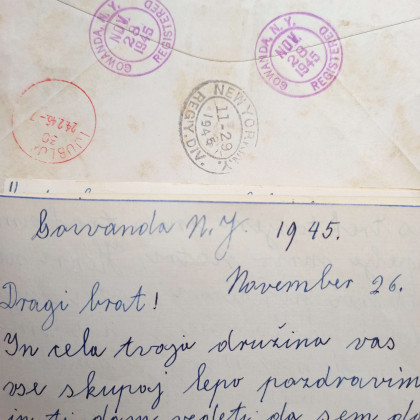 GOWANDA, N.Y. REGISTERED NOV 28 1945
GOWANDA, N.Y. REGISTERED NOV 28 1945
LJUBLJ
24.2.46-7
NEW YORK, N.Y. REG'Y. DIV.
11-29
1945
Gowanda N.Y. 1945.
November 26.
Dragi brat!
In cela tvoja družina vas
vse skupaj lepo pozdravim
in ti dam vedeti da sem